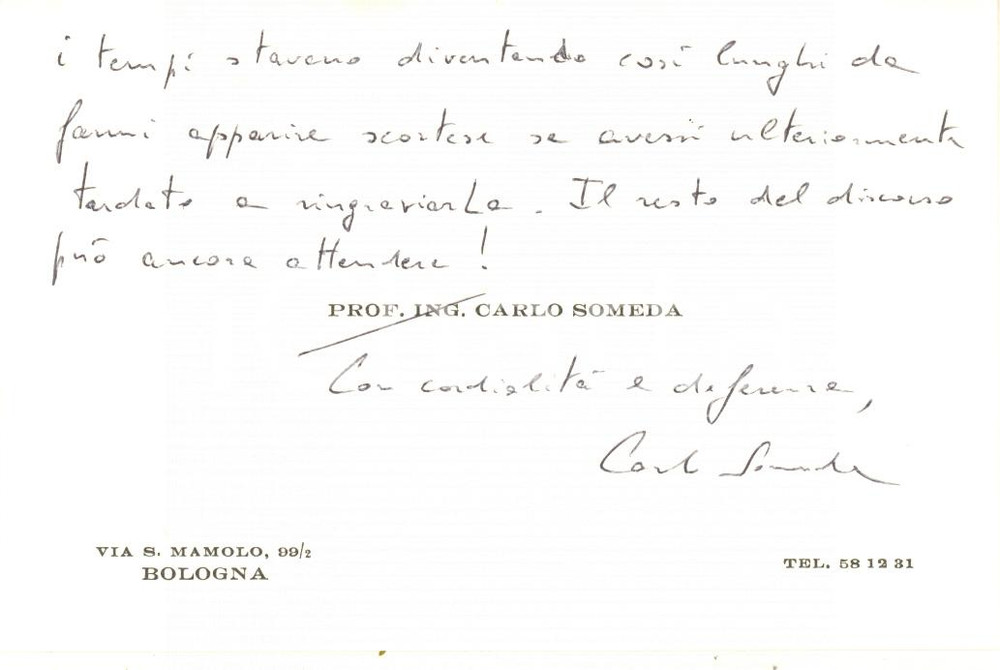 i tempi stavano diventando così lunghi da
farmi apparire scortese se avessi ulteriormente
tardato a ringraziarLa. Il resto del discorso
può ancora attendere!
PROF. ING. CARLO SOMEDA
Con cordialità e deferenza,
Carlo Someda
VIA S. MAMOLO, 99/2
BOLOGNA
TEL. 58 12 31